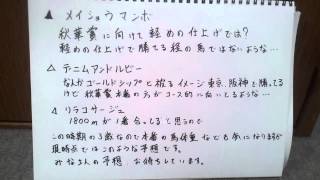 ▲ メイショウマンボ
秋華賞に向けて軽めの仕上げでは?
軽めの仕上げで勝てる程の馬ではないような…
△ デニムアンドルビー
なんかゴールドシップと被るイメージ 東京、阪神で勝ってる
けど 秋華賞 本番の方がコース的に向いてるような…
△ リラコサージュ
1800mが1番合ってると思うので
この時期の3歳なので本番の馬体重なども気になりますが
現時点ではこのような予想です。
みなさんの予想、お待ちしています。